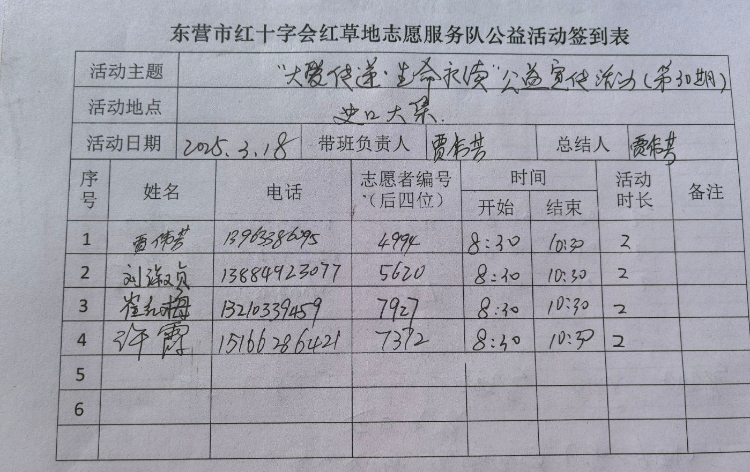 东营市红十字会红草地志愿服务队公益活动签到表
活动主题 "大爱传递·生命永续"公益宣传活动(第30期)
活动地点 史口大集.
活动日期 2025.3.18 带班负责人 贾伟芳 总结人 贾伟芳
序号 姓名 电话 志愿者编号(后四位) 时间 开始 结束 活动时长 备注
1 贾伟芳 13963386095 4994 8:30 10:30 2
2 刘淑贞 13884923077 5620 8:30 10:30 2
3 崔红梅 13210339459 7927 8:30 10:30 2
4 许霞 15166286421 7372 8:30 10:30 2
5
6